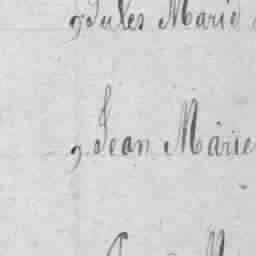 9 Jules Marie
9 Jean Marie